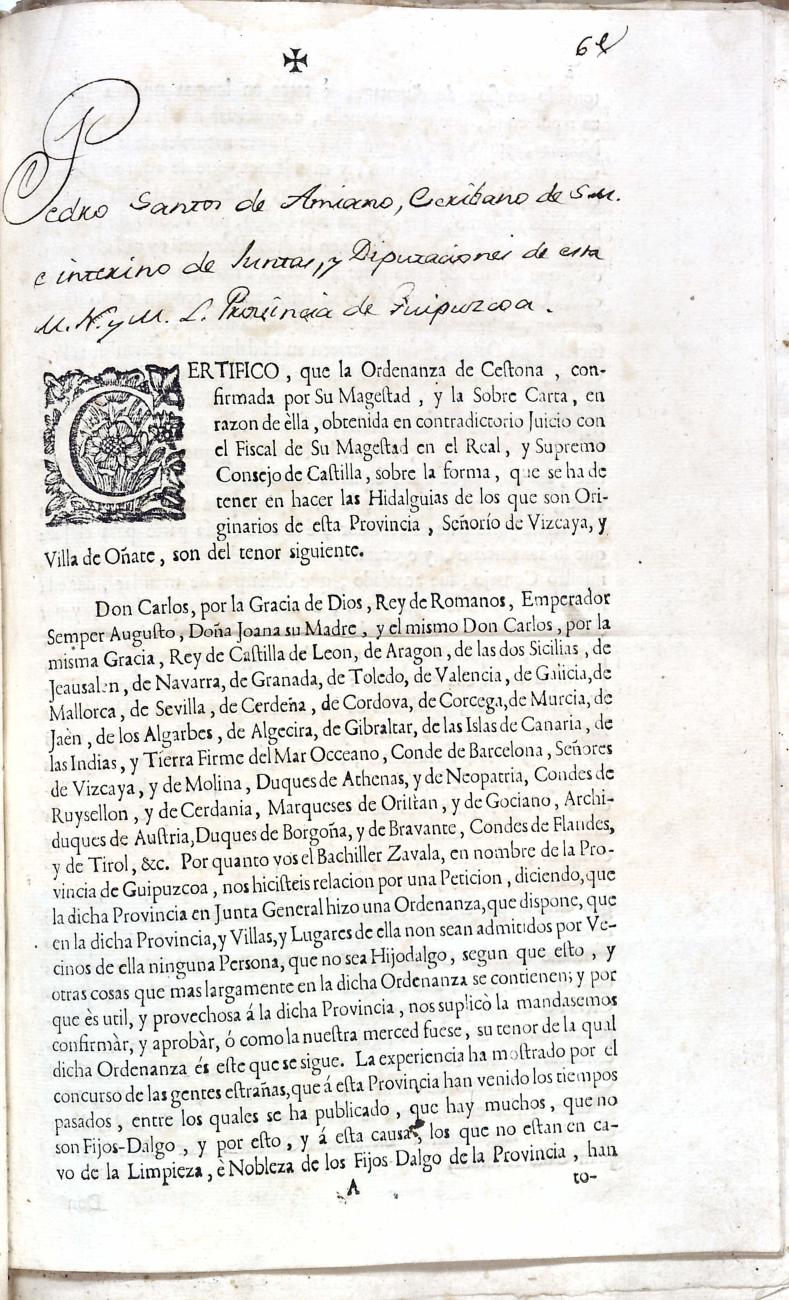 ✠
Pedro Santos de Amiano, Escribano de S.M.
e interino de Juntas, y Diputaciones de esta
M. N. y M. L. Provincia de Guipuzcoa.
CERTIFICO, que la Ordenanza de Cestona, con-
firmada por Su Magestad, y la Sobre Carta, en
razon de èlla, obtenida en contradictorio Juicio con
el Fiscal de Su Magestad en el Real, y Supremo
Consejo de Castilla, sobre la forma, que se ha de
tener en hacer las Hidalguias de los que son Ori-
ginarios de esta Provincia, Señorío de Vizcaya, y
Villa de Oñate, son del tenor siguiente.
Don Carlos, por la Gracia de Dios, Rey de Romanos, Emperador
Semper Augusto, Doña Joana su Madre, y el mismo Don Carlos, por la
misma Gracia, Rey de Castilla de Leon, de Aragon, de las dos Sicilias, de
Jeausalen, de Navarra, de Granada, de Toledo, de Valencia, de Galicia, de
Mallorca, de Sevilla, de Cerdeña, de Cordova, de Corcega, de Murcia, de
Jaèn, de los Algarbes, de Algecira, de Gibraltar, de las Islas de Canaria, de
las Indias, y Tierra Firme del Mar Occeano, Conde de Barcelona, Señores
de Vizcaya, y de Molina, Duques de Athenas, y de Neopatria, Condes de
Ruysellon, y de Cerdania, Marqueses de Oristan, y de Gociano, Archi-
duques de Austria, Duques de Borgoña, y de Bravante, Condes de Flandes,
y de Tirol, &c. Por quanto vos el Bachiller Zavala, en nombre de la Pro-
vincia de Guipuzcoa, nos hicisteis relacion por una Peticion, diciendo, que
la dicha Provincia en Junta General hizo una Ordenanza, que dispone, que
en la dicha Provincia, y Villas, y Lugares de ella non sean admitidos por Ve-
cinos de ella ninguna Persona, que no sea Hijodalgo, segun que esto, y
otras cosas que mas largamente en la dicha Ordenanza se contienen; y por
que ès util, y provechosa á la dicha Provincia, nos suplicò la mandasemos
confirmàr, y aprobàr, ó como la nuestra merced fuese, su tenor de la qual
dicha Ordenanza és este que se sigue. La experiencia ha mostrado por el
concurso de las gentes estrañas, que á esta Provincia han venido los tiempos
pasados, entre los quales se ha publicado, que hay muchos, que no
son Fijos-Dalgo, y por esto, y á esta causa, los que no estan en ca-
vo de la Limpieza, è Nobleza de los Fijos Dalgo de la Provincia, han
A
to-